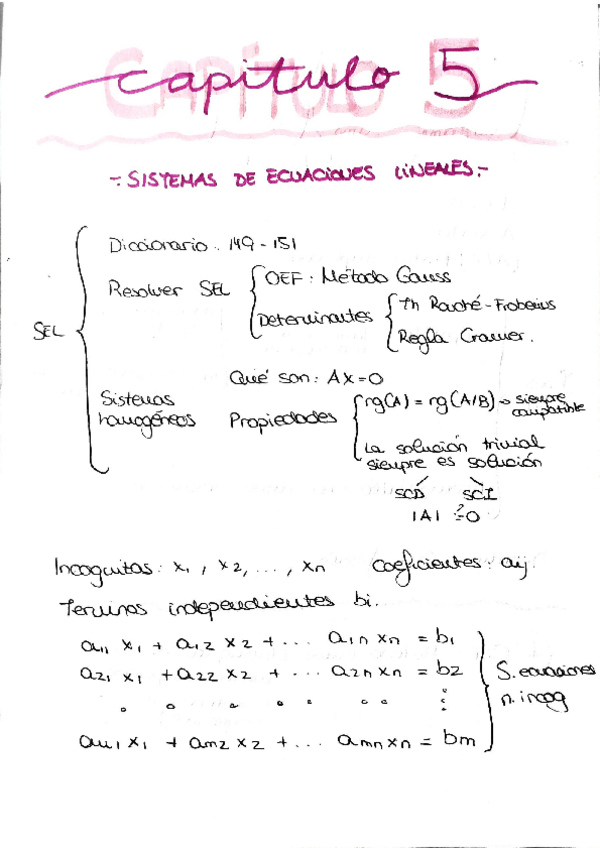 Capítulo 5
-: SISTEMAS DE ECUACIONES LINEALES :-
Diccionario : 149 - 151
Resolver SEL
OEF : Método Gauss
Determinantes
Th Rouché - Frobenius
Regla Cramer.
SEL
Qué son : AX = 0
Sistemas homogéneos
Propiedades
rg(A) = rg(A/B) → siempre compatible
La solución trivial
siempre es solución
SCD SCI
|A| ?=0
Incognitas : x₁ , x₂, ... , xn Coeficientes : aij.
Terminos independientes bi.
a₁₁ x₁ + a₁₂ x₂ + ... a₁n xn = b₁
a₂₁ x₁ + a₂₂ x₂ + ... a₂n xn = b₂
S. ecuaciones
n. incog
am₁ x₁ + am₂ x₂ + ... amn xn = bm